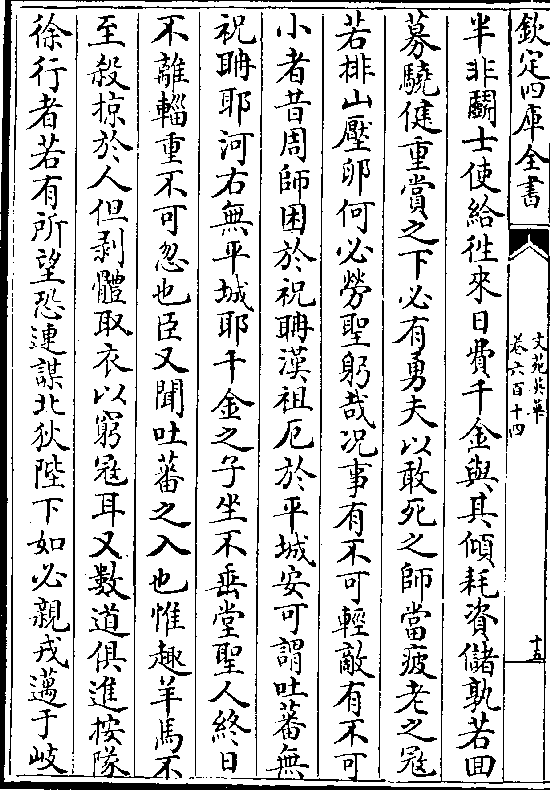 欽定四庫全書
文苑英華
卷六百十四
十五
半非鬬士使給徃來日費千金與其傾耗資儲孰若回
募驍健重賞之下必有勇夫以敢死之師當疲老之冦
若排山壓卵何必勞聖躬哉况事有不可輕敵有不可
小者昔周師困於祝聃漢祖厄於平城安可謂吐蕃無
祝聃耶河右無平城耶千金之子坐不垂堂聖人終日
不離輜重不可忽也臣又聞吐蕃之入也惟趣羊馬不
至殺掠於人但剥體取衣以窮冦耳又數道俱進按隊
徐行者若有所望恐連謀北狄陛下如必親戎邁于岐